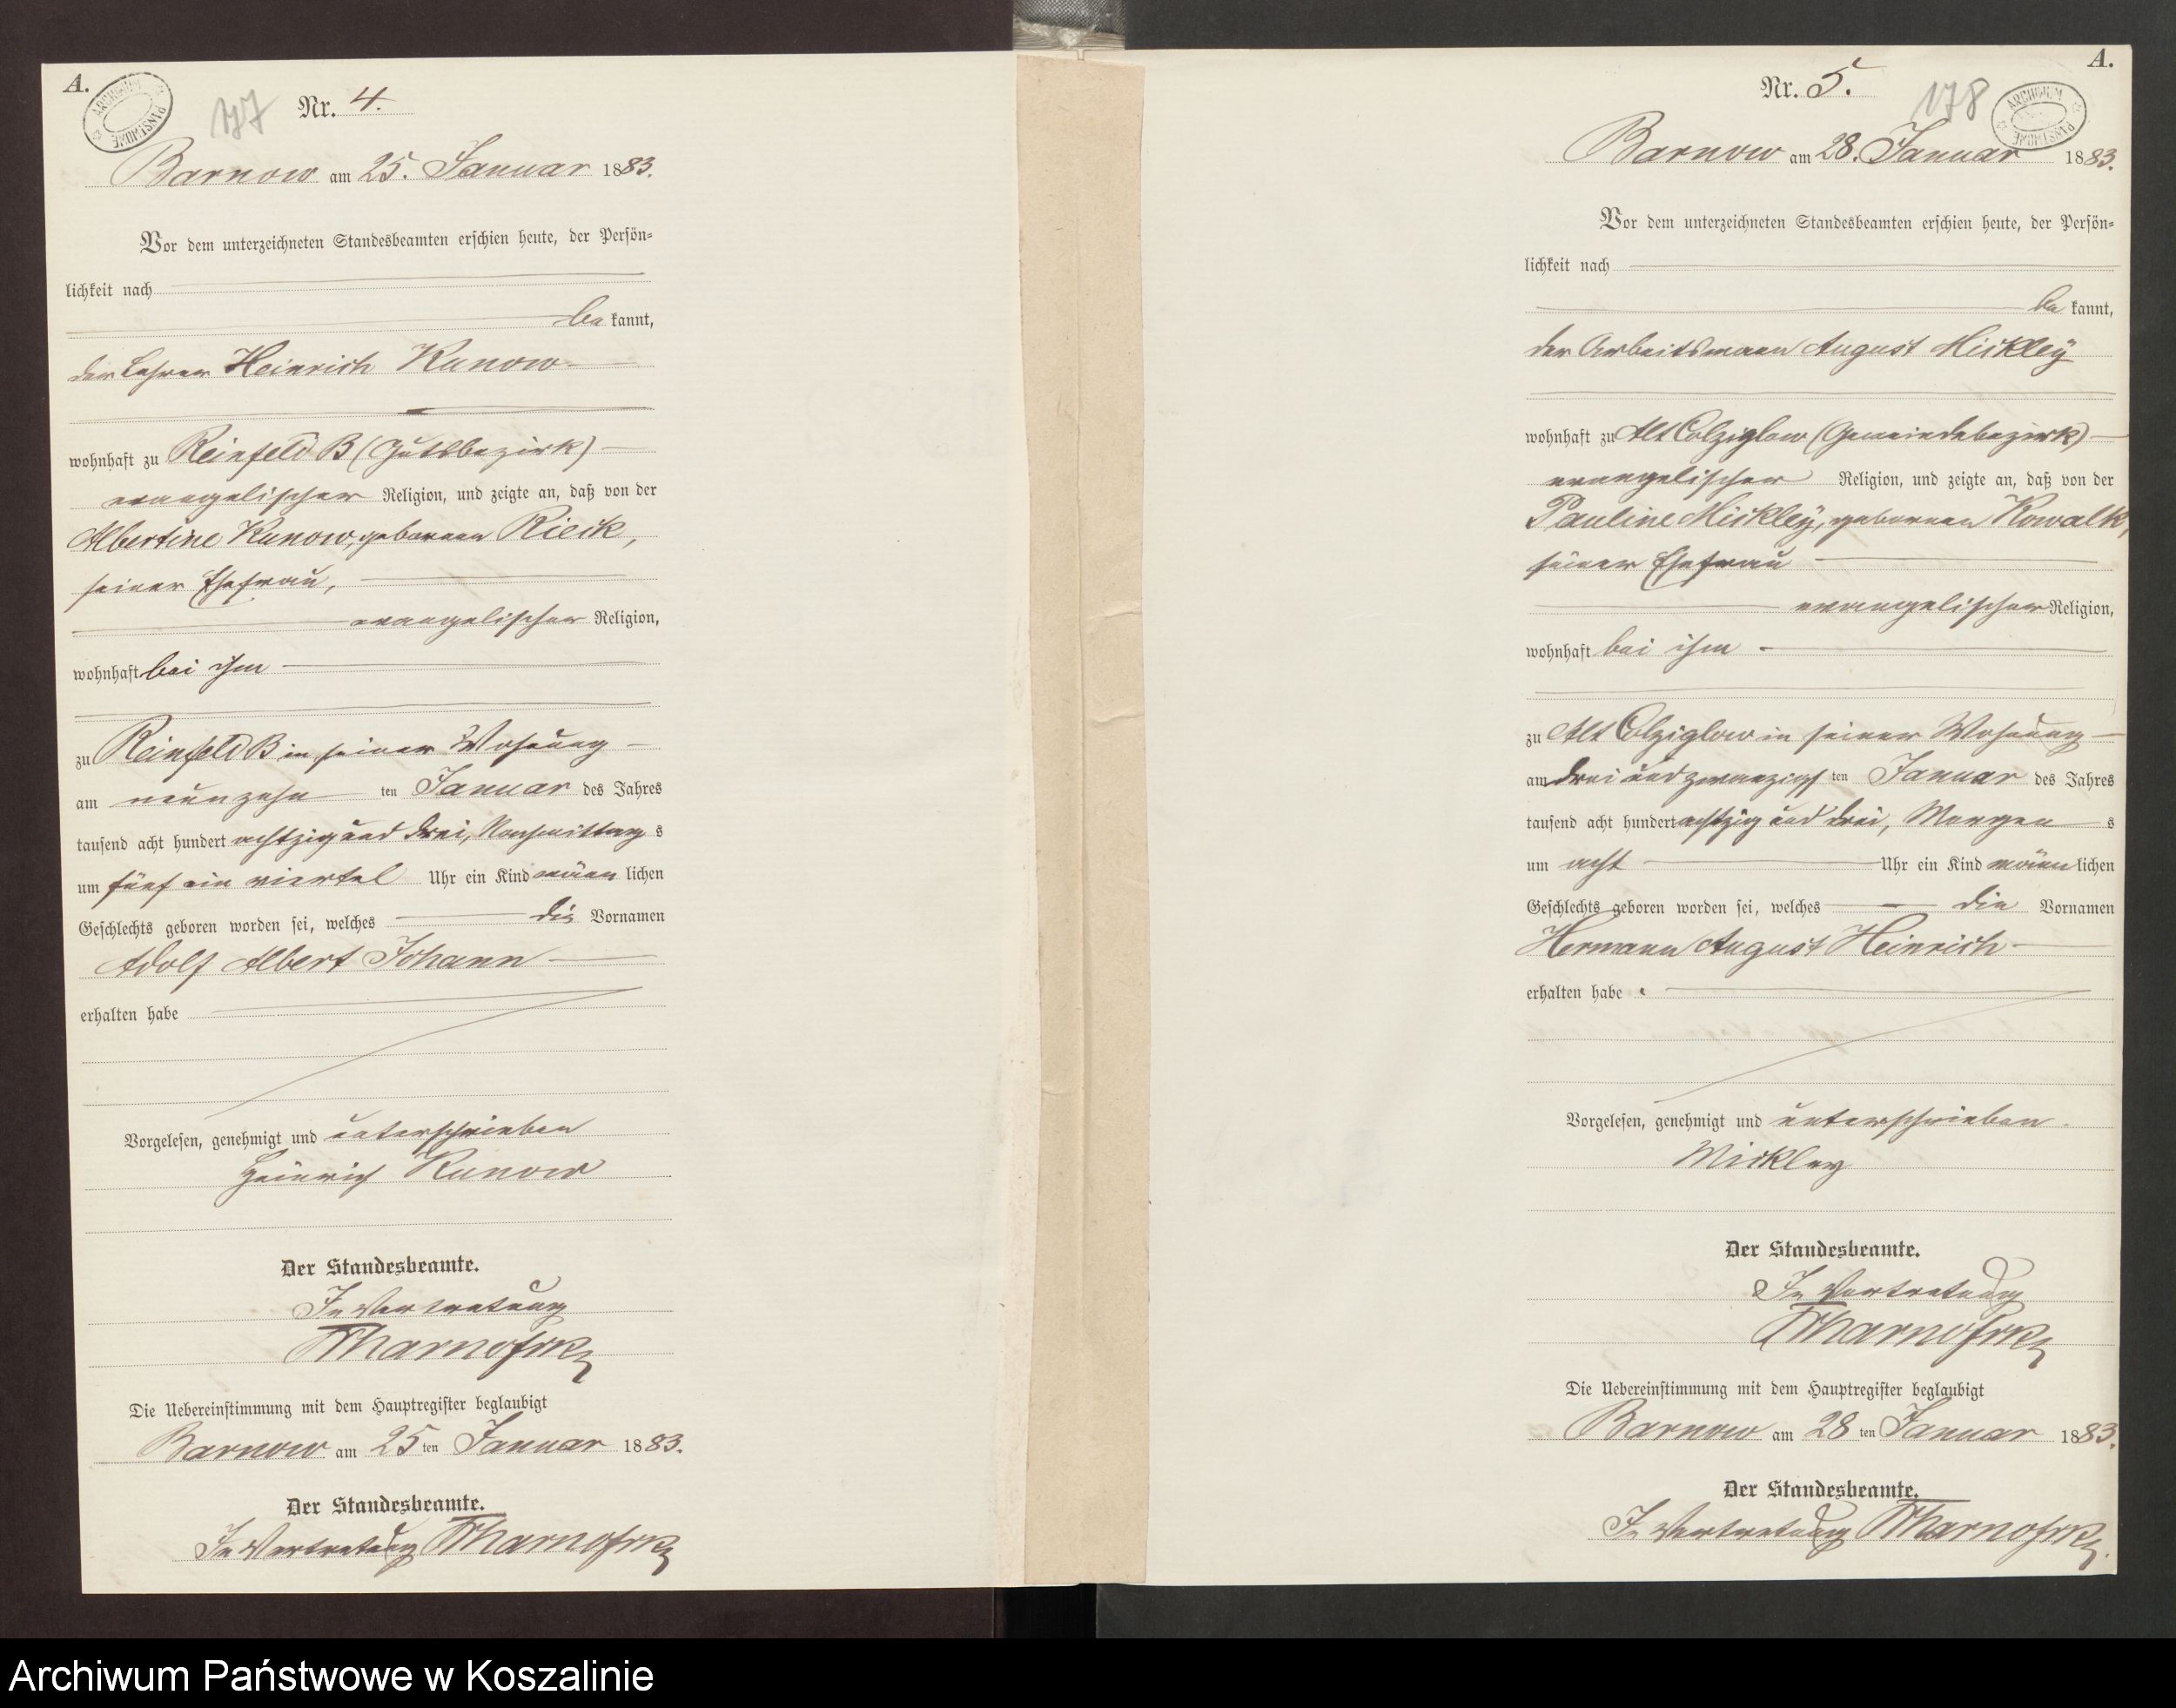 A.
177
Nr. 4.
Barnow am 25. Januar 1883.
Vor dem unterzeichneten Standesbeamten erschien heute, der Persön-
lichkeit nach
be kannt,
der Lehrer Heinrich Kunow
wohnhaft zu Reinfeld B (Gutsbezirk)
evangelischer Religion, und zeigte an, daß von der
Albertine Kunow, geborenen Rieck,
seiner Ehefrau,
evangelischer Religion,
wohnhaft bei ihm
zu Reinfeld B in seiner Wohnung
am neunzehn ten Januar des Jahres
tausend acht hundert achtzig und drei, Nachmittag s
um fünf ein viertel Uhr ein Kind männ lichen
Geschlechts geboren worden sei, welches die Vornamen
Adolf Albert Johann
erhalten habe
Vorgelesen, genehmigt und unterschrieben
Heinrich Kunow
Der Standesbeamte.
In Vertretung
Die Uebereinstimmung mit dem Hauptregister beglaubigt
Barnow am 25 ten Januar 1883.
Der Standesbeamte.
In Vertretung
A.
178
ARCHIWUM PAŃSTWOWE
Nr. 5.
Barnow am 28. Januar 1883.
Vor dem unterzeichneten Standesbeamten erschien heute, der Persön-
lichkeit nach
be kannt,
der Arbeitsmann August Mickley
wohnhaft zu Alt Colziglow (Gemeindebezirk)
evangelischer Religion, und zeigte an, daß von der
Pauline Mickley, geborenen Kowalk,
seiner Ehefrau
evangelischer Religion,
wohnhaft bei ihm
zu Alt Colziglow in seiner Wohnung
am drei und zwanzigs ten Januar des Jahres
tausend acht hundert achtzig und drei, Morgen s
um acht Uhr ein Kind männ lichen
Geschlechts geboren worden sei, welches die Vornamen
Hermann August Heinrich
erhalten habe.
Vorgelesen, genehmigt und unterschrieben.
Mickley
Der Standesbeamte.
In Vertretung
Die Uebereinstimmung mit dem Hauptregister beglaubigt
Barnow am 28 ten Januar 1883.
Der Standesbeamte.
In Vertretung
Archiwum Państwowe w Koszalinie